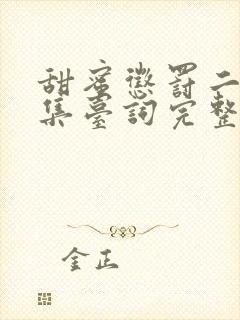 甜蜜懲罰二
集臺詞完整
金正